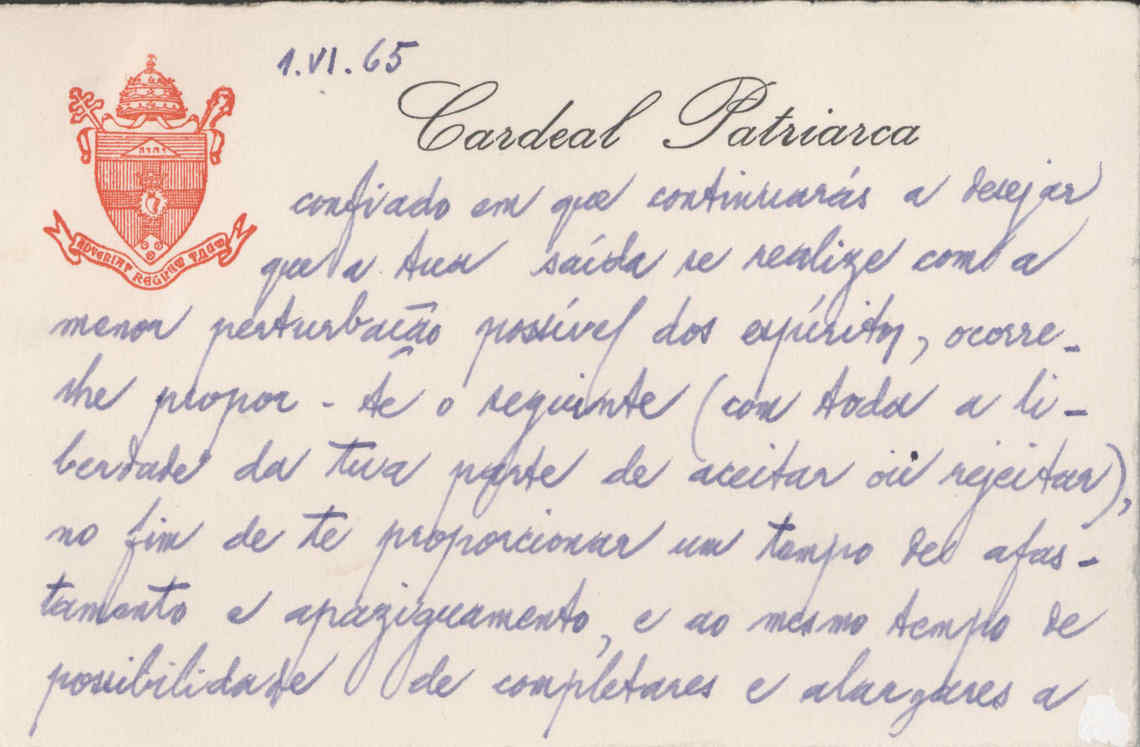 1.VI.65
Cardeal Patriarca
ADVENIAT REGNUM TUUM
confiado em que continuarás a desejar
que a tua saída se realize com a
menor perturbação possível dos espíritos, ocorre-
me propor-te o seguinte (com toda a li-
berdade da tua parte de aceitar ou rejeitar),
no fim de te proporcionar um tempo de afas-
tamento e apaziguamento, e ao mesmo tempo de
possibilidade de completares e alargares a